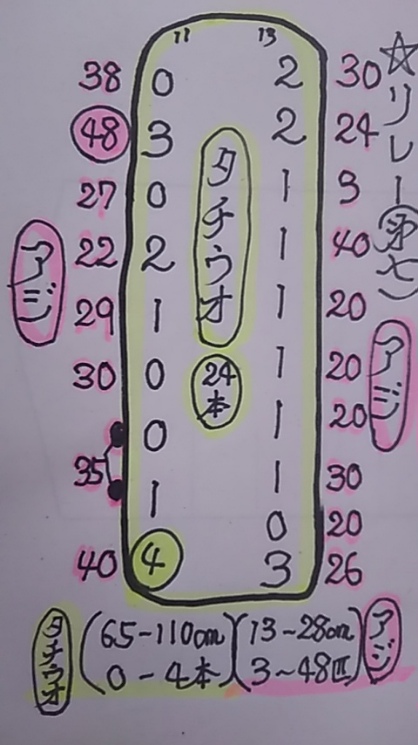 ☆リレー(第七)
11 13
38 0 2 30
48 3 2 24
27 0 1 3
22 2 1 40
29 1 1 20
30 0 1 20
0 1 20
35
1 1 30
0 20
40 4 3 26
アジ
タチウオ
24本
アジ
タチウオ (65-110cm 0-4本) (13-28cm 3~48匹) アジ